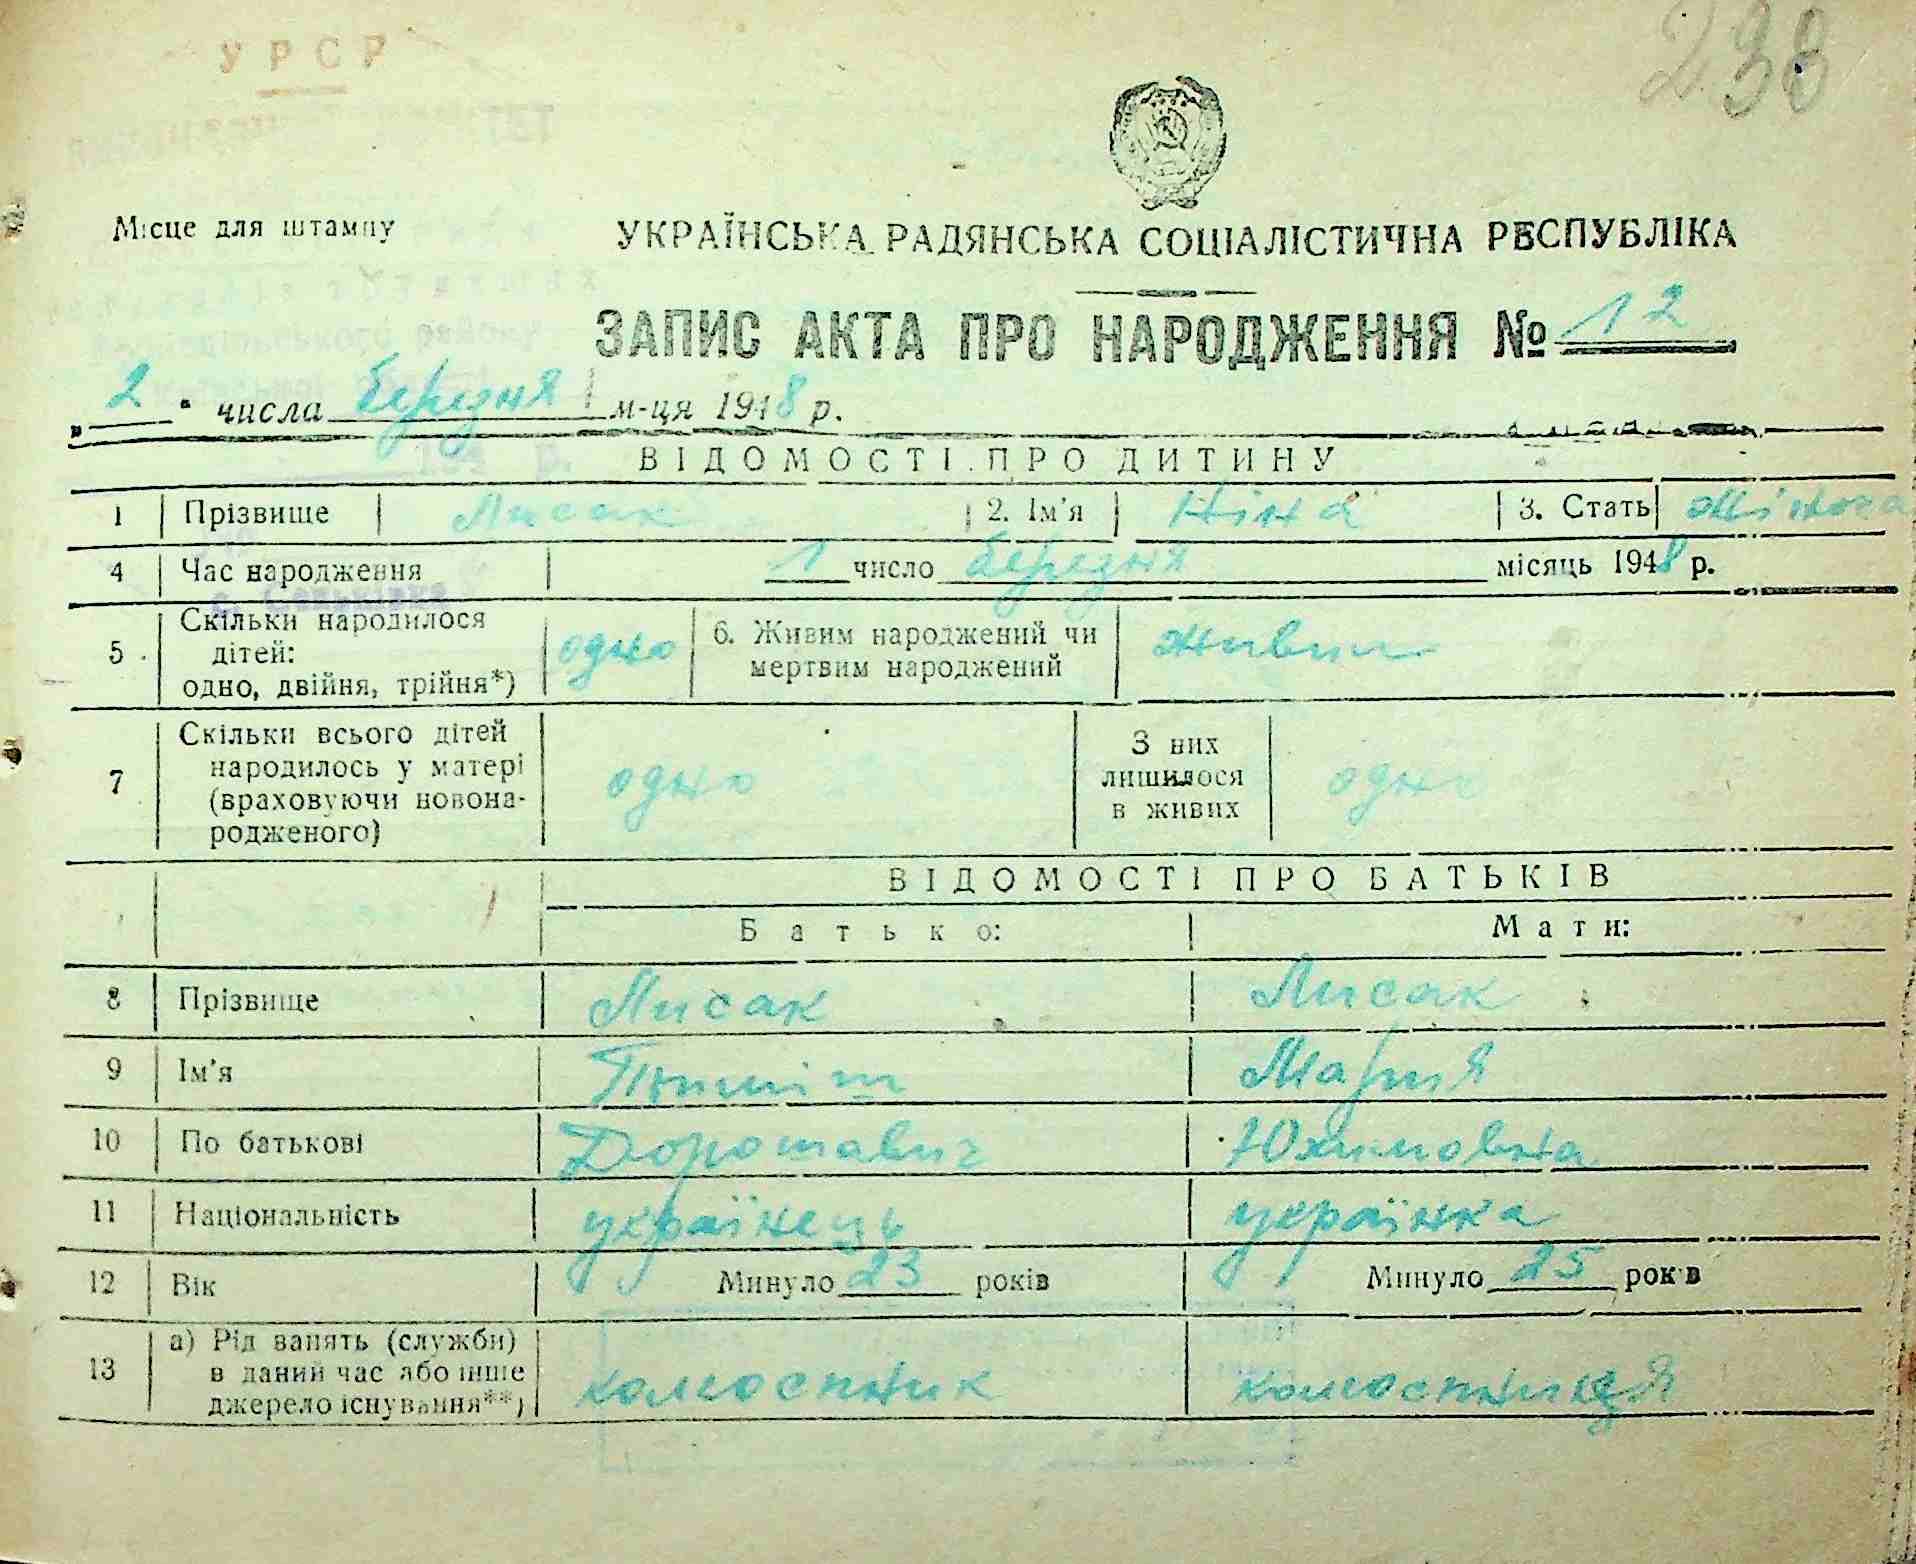 УРСР
233
Місце для штампу
УКРАЇНСЬКА РАДЯНСЬКА СОЦІАЛІСТИЧНА РЕСПУБЛІКА
ЗАПИС АКТА ПРО НАРОДЖЕННЯ № 12
„2" числа березня м-ця 1948 р.
ВІДОМОСТІ ПРО ДИТИНУ
1 Прізвище Лисак 2. Ім'я Ніна 3. Стать жіноча
4 Час народження 1 число березня місяць 1948 р.
с. Сеньківка
5 Скільки народилося дітей: одно, двійня, трійня*) одно 6. Живим народжений чи мертвим народжений живим
7 Скільки всього дітей народилось у матері (враховуючи новонародженого) одно З них лишилося в живих одно
ВІДОМОСТІ ПРО БАТЬКІВ
Батько: Мати:
8 Прізвище Лисак Лисак
9 Ім'я Мария
10 По батькові Дорошавич Юхимовна
11 Національність українець українка
12 Вік Минуло 23 років Минуло 25 років
13 а) Рід занять (служби) в даний час або інше джерело існування**) колгоспник колгоспниця